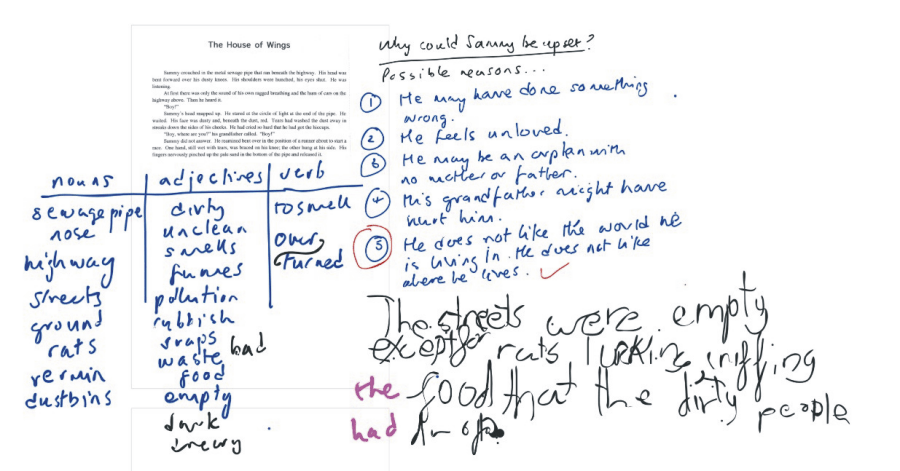 The House of Wings
Sammy crouched in the metal sewage pipe that ran beneath the highway. His head was
bent forward over his dusty knees. His shoulders were hunched, his eyes shut. He was
listening.
At first there was only the sound of his own ragged breathing and the hum of cars on the
highway above. Then he heard it.
"Boy!"
Sammy's head snapped up. He stared at the circle of light at the end of the pipe. He
waited. His face was dusty and, beneath the dust, red. Tears had washed the dust away in
streaks down the sides of his cheeks. He had cried so hard that he had got the hiccups.
"Boy, where are you?" his grandfather called. "Boy!"
Sammy did not answer. He remained bent over in the position of a runner about to start a
race. One hand, still wet with tears, was braced on his knee; the other hung at his side. His
fingers nervously picked up the pale sand in the bottom of the pipe and released it.
Why could Sammy be upset?
Possible reasons...
1 He may have done something
wrong.
2 He feels unloved.
He may be an orphan with
no mother or father.
4 His grandfather might have
hurt him.
5 He does not like the world he
is living in. He does not like
where he lives.
nouns adjectives verb
sewage pipe dirty to smell
nose unclean over
highway smells turned
streets fumes
ground pollution
rats rubbish
vermin scraps
dustbins waste bad
food
empty
dark
dreary
The streets were empty
except for rats lurking sniffing
the food that the dirty people
had